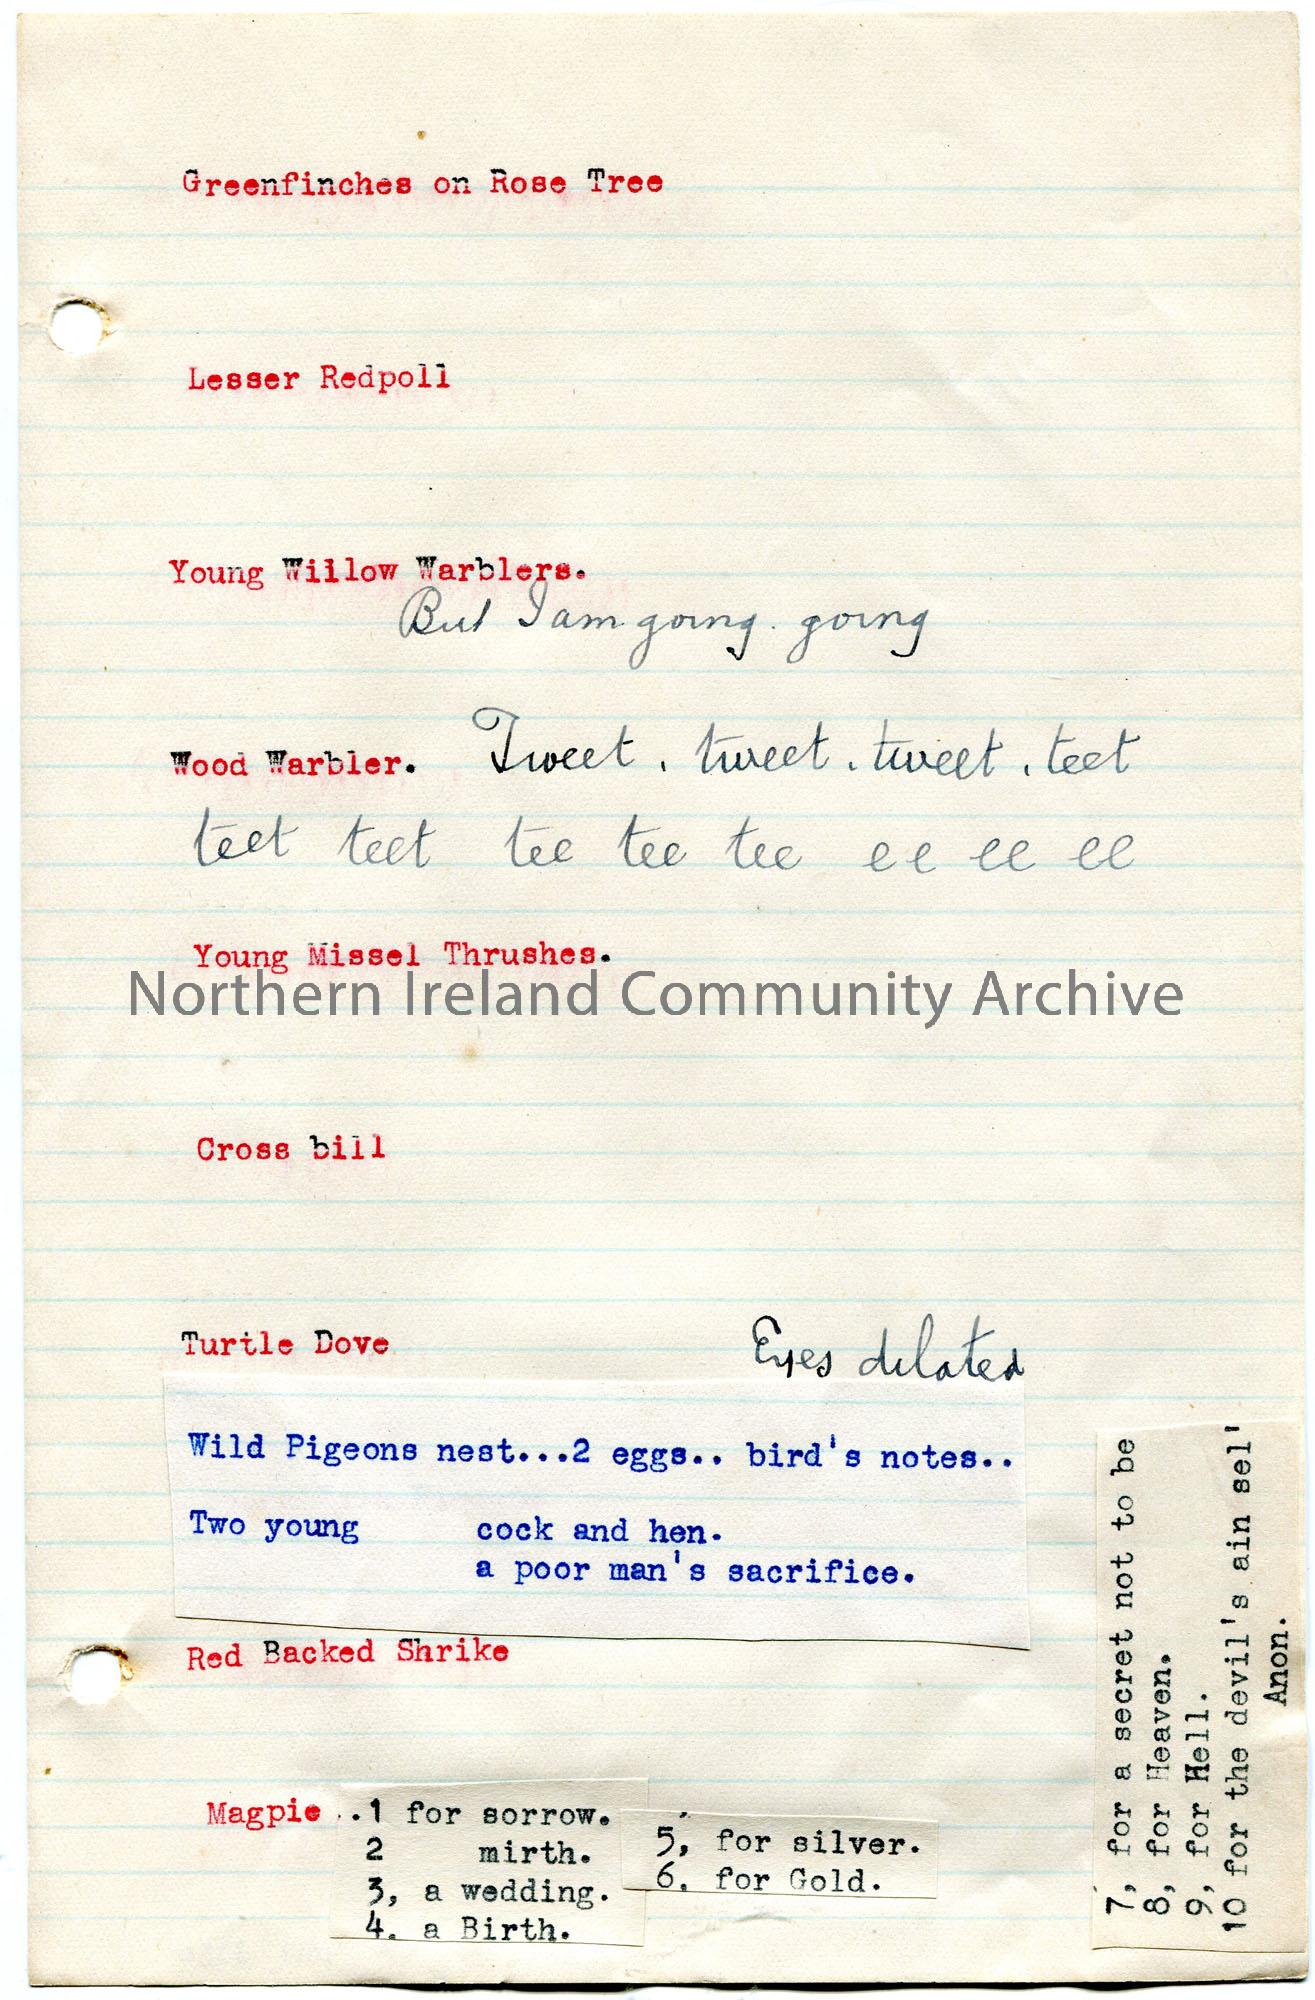 Greenfinches on Rose Tree
Lesser Redpoll
Young Willow Warblers.
But I am going. going
Wood Warbler. Tweet, tweet, tweet, teet
teet teet tee tee tee ee ee ee
Young Missel Thrushes.
Northern Ireland Community Archive
Cross bill
Turtle Dove Eyes dilated
Wild Pigeons nest...2 eggs.. bird's notes..
Two young cock and hen.
a poor man's sacrifice.
Red Backed Shrike
Magpie ..1 for sorrow.
2 mirth.
3, a wedding.
4. a Birth.
5, for silver.
6. for Gold.
7, for a secret not to be
8, for Heaven.
9, for Hell.
10 for the devil's ain sel'
Anon.